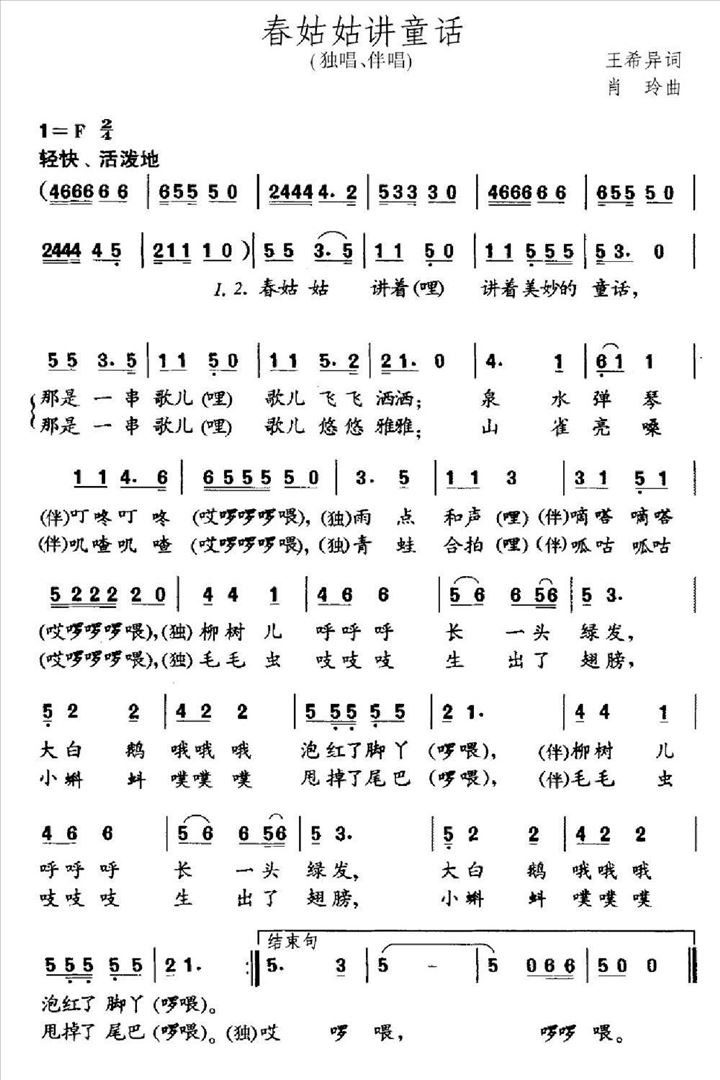 春姑姑讲童话
(独唱、伴唱)
王希异词
肖 玲曲
1=F 2/4
轻快、活泼地
(46666 6 6 | 6 5 5 5 0 | 24444. 2 | 5 3 3 3 0 | 46666 6 6 | 6 5 5 5 0 |
2444 4 5 | 2 1 1 1 0 ) | 5 5 3. 5 | 1 1 5 0 | 1 1 5 5 5 | 5 3. 0 |
1. 2. 春姑 姑 讲着(哩) 讲着美妙的 童话,
5 5 3. 5 | 1 1 5 0 | 1 1 5. 2 | 2 1. 0 | 4. 1 | 6 1 1 |
那是 一 串 歌儿(哩) 歌儿 飞 飞 洒洒; 泉 水 弹 琴
那是 一 串 歌儿(哩) 歌儿 悠 悠 雅雅; 山 雀 亮 嗓
1 1 4. 6 | 6 5 5 5 5 0 | 3. 5 | 1 1 3 | 3 1 5 1 |
(伴)叮咚叮 咚 (哎啰啰啰喂), (独)雨 点 和声(哩) (伴)嘀嗒 嘀嗒
(伴)叽喳叽 喳 (哎啰啰啰喂), (独)青 蛙 合拍(哩) (伴)呱咕 呱咕
5 2 2 2 2 0 | 4 4 1 | 4 6 6 | 5 6 6 5 6 | 5 3. |
(哎啰啰啰喂),(独)柳树 儿 呼呼 呼 长 一 头 绿 发,
(哎啰啰啰喂),(独)毛毛 虫 吱吱 吱 生 出 了 翅 膀,
5 2 2 | 4 2 2 | 5 5 5 5 5 | 2 1. | 4 4 1 |
大白 鹅 哦哦 哦 泡红了脚丫 (啰喂), (伴)柳树 儿
小蝌 蚪 噗噗 噗 甩掉了尾巴 (啰喂), (伴)毛毛 虫
4 6 6 | 5 6 6 5 6 | 5 3. | 5 2 2 | 4 2 2 |
呼呼 呼 长 一 头 绿 发, 大白 鹅 哦哦 哦
吱吱 吱 生 出 了 翅 膀, 小蝌 蚪 噗噗 噗
结束句
5 5 5 5 5 | 2 1. :‖ 5. 3 | 5 - | 5 0 6 6 | 5 0 0 ‖
泡红了 脚丫 (啰喂)。
甩掉了 尾巴 (啰喂)。(独)哎 啰 喂, 啰啰 喂。